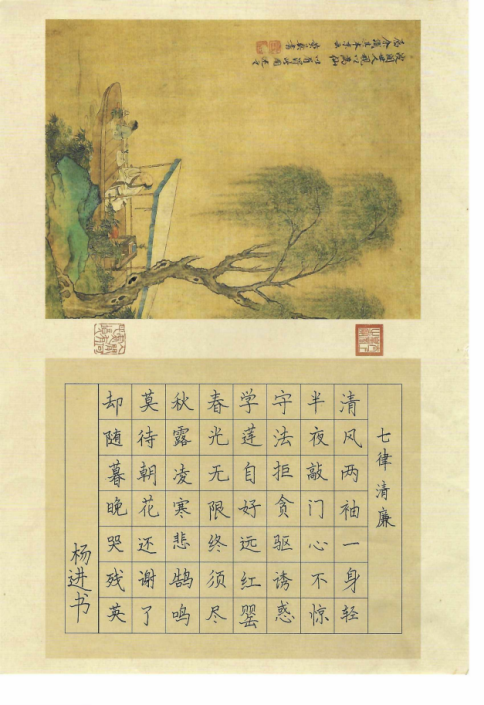 七律清廉
清风两袖一身轻
半夜敲门心不惊
守法拒贪驱诱惑
学莲自好远红罂
春光无限终须尽
秋露凌寒悲鹄鸣
莫待朝花还谢了
却随暮晚哭残英
杨进书